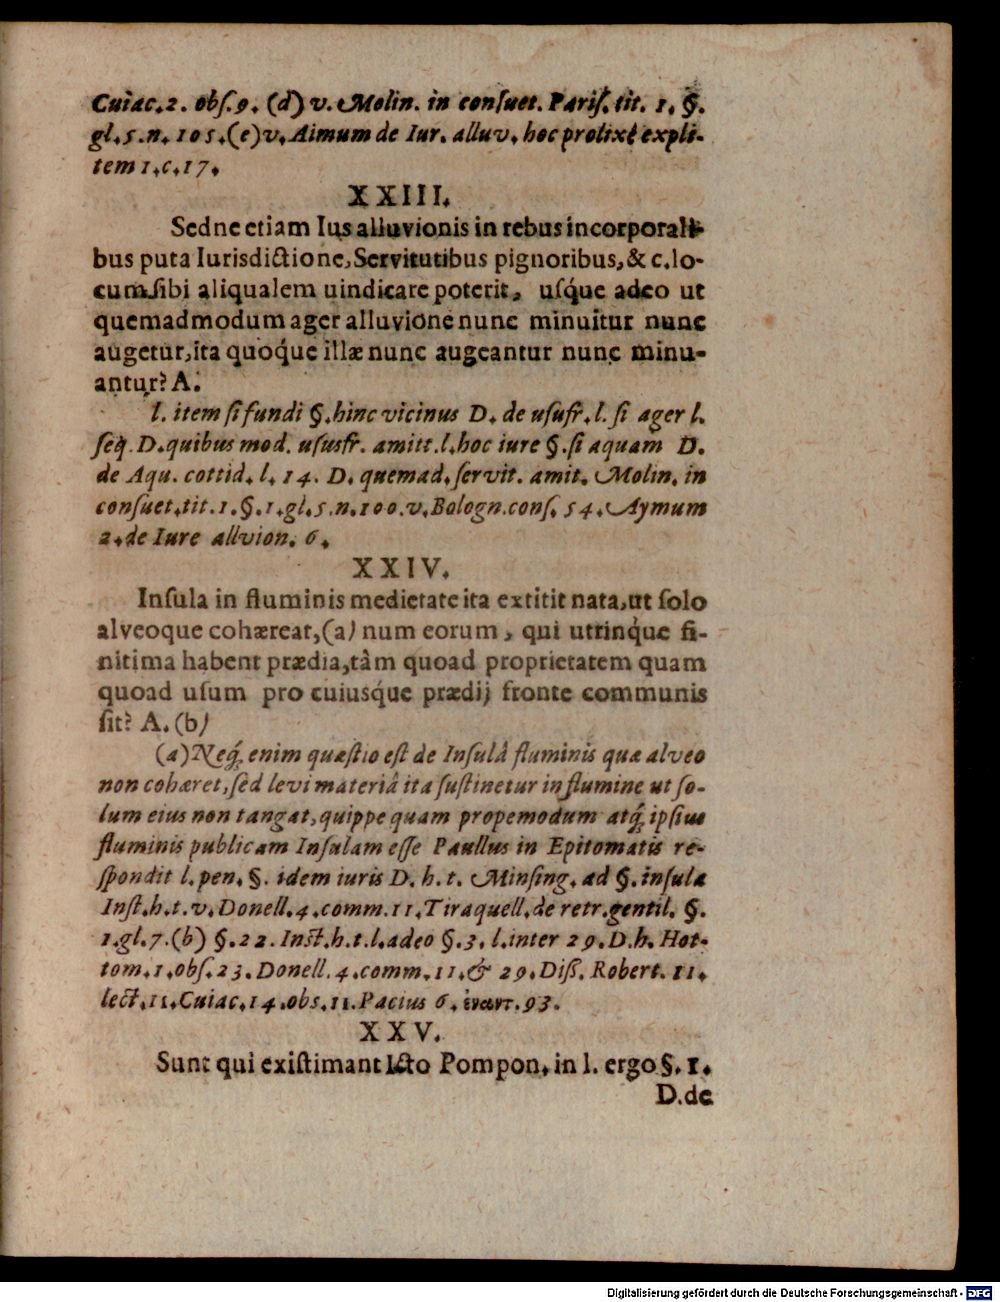 Cuiac.2. obſ.9. (d) v. Molin. in conſuet. Pariſ. tit. 1. §.
gl.5.n.105.(e)v.Aimum de Iur. alluv. hoc prolixè expli-
tem 1.c.17.
XXIII.
Sed ne etiam Ius alluvionis in rebus incorporali-
bus puta Iurisdictione,Servitutibus pignoribus,& c.lo-
cum ſibi aliqualem uindicare poterit, uſq́ue adeo ut
quemadmodum ager alluvione nunc minuitur nunc
augetur,ita quoq́ue illæ nunc augeantur nunc minu-
antur? A.
l. item ſi fundi §.hinc vicinus D. de uſufr.l. ſi ager l.
ſeq́. D.quibus mod. uſusfr. amitt.l.hoc iure §.ſi aquam D.
de Aqu. cottid. l. 14. D. quemad.ſervit. amit. Molin. in
conſuet.tit.1.§.1.gl.5.n.100.v.Bologn.conſ. 54. Aymum
2.de Iure allvion. 6.
XXIV.
Inſula in fluminis medietate ita extitit nata,ut ſolo
alveoque cohæreat,(a) num eorum, qui utrinq́ue fi-
nitima habent prædia,tàm quoad proprietatem quam
quoad uſum pro cuiusq́ue prædij fronte communis
ſit? A.(b)
(a)Neq́ enim quæſtio eſt de Inſulâ fluminis quæ alveo
non cohæret,ſed levi materiâ ita ſuſtinetur in flumine ut ſo-
lum eius non tangat,quippe quam propemodum atq́ ipſius
fluminis publicam Inſulam eſſe Paullus in Epitomatis re-
ſpondit l.pen.§. idem iuris D. h. t. Minſing. ad §.inſula
Inſt.h.t.v.Donell.4.comm.11.Tiraquell.de retr.gentil. §.
1.gl.7.(b) §.22.Inſt.h.t.l.adeo §.3. l.inter 29.D.h. Hot-
tom.1.obſ.23.Donell.4.comm.11.& 29.Diſſ. Robert. 11.
lect.11.Cuiac.14.obs.11.Pacius 6. ἐναντ.93.
XXV.
Sunt qui exiſtimant Icto Pompon. in l. ergo §. 1.
D.de
Digitalisierung gefördert durch die Deutsche Forschungsgemeinschaft - DFG